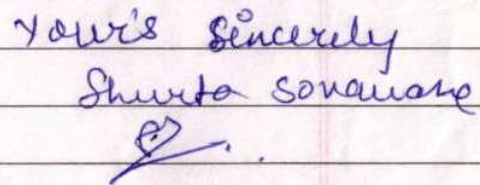 Your's Sincerely
Shweta Sonawane